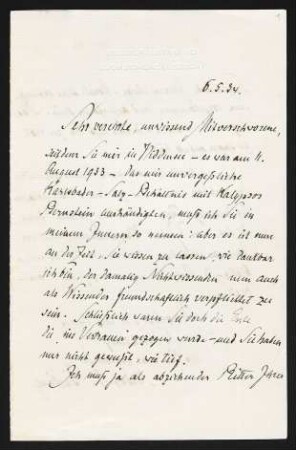 6.5.34.
Sehr verehrte, unwissend Mitverschworene,
seitdem Sie mir in Nidden – es war am 11.
August 1933 – das mir unvergeßliche
Karlsbader-Salz-Behältnis mit Kalypsos
Bernstein aushändigten, muß ich Sie in
meinem Innern so nennen: aber es ist nun
an der Zeit, Sie wissen zu lassen, wie dankbar
ich bin, der damalig Nichtwissenden nun auch
als Wissender freundschaftlich verpflichtet zu
sein. Schließlich waren Sie doch die Erste
die ins Vertrauen gezogen wurde – und Sie haben
nur nicht gewußt, wie tief.
Ich muß ja als abziehender Ritter Ihren